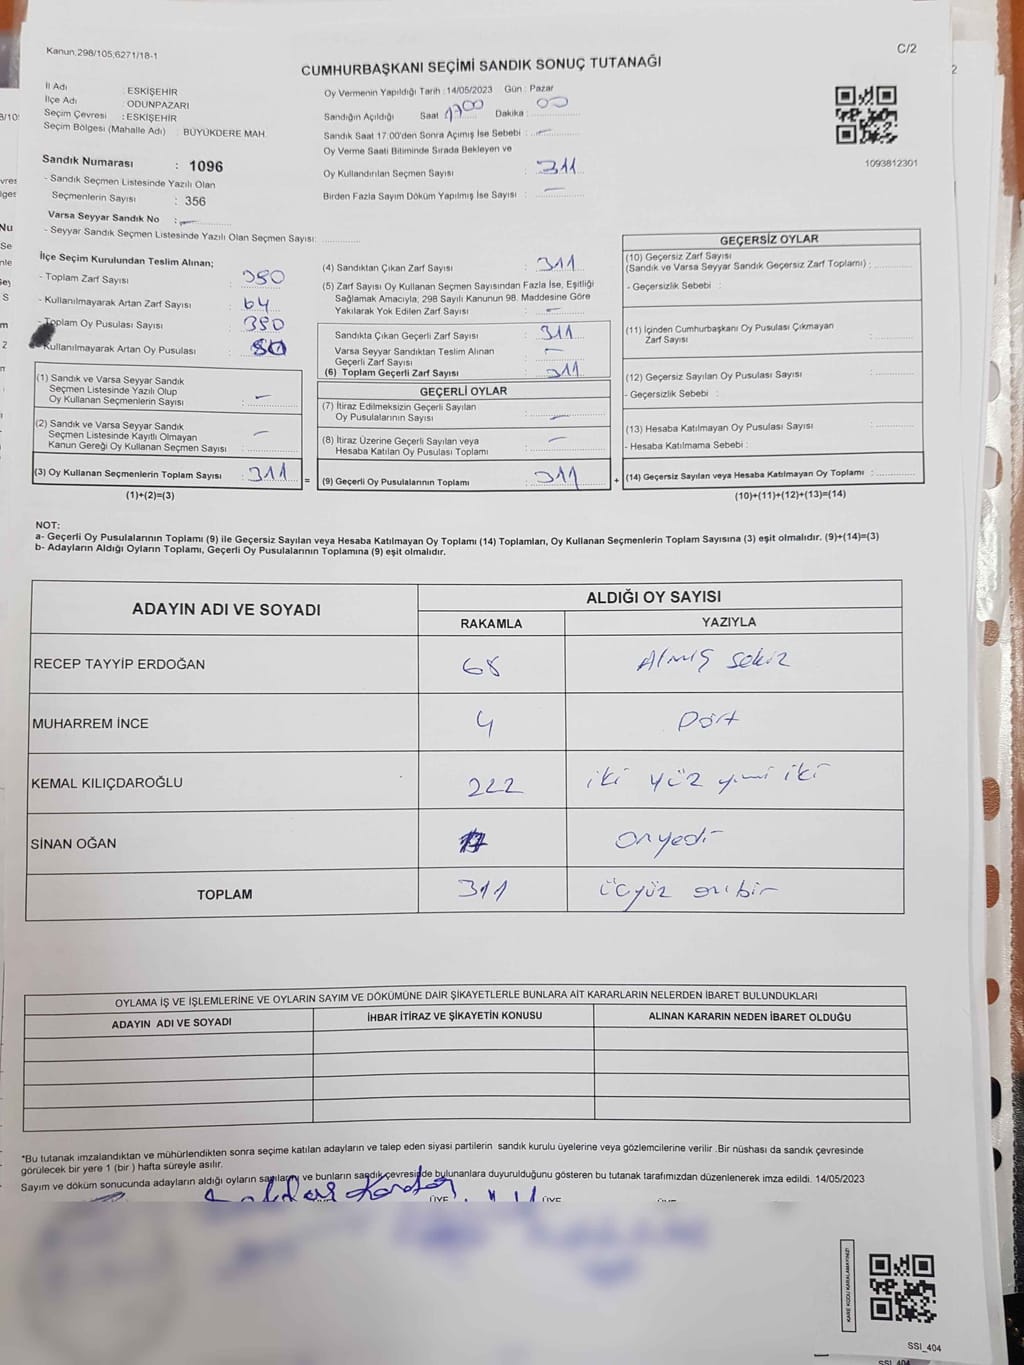 Kanun,298/105,6271/18-1
C/2
CUMHURBAŞKANI SEÇİMİ SANDIK SONUÇ TUTANAĞI
İl Adı : ESKİŞEHİR
İlçe Adı : ODUNPAZARI
Seçim Çevresi : ESKİŞEHİR
Seçim Bölgesi (Mahalle Adı) : BÜYÜKDERE MAH.
Oy Vermenin Yapıldığı Tarih : 14/05/2023 Gün : Pazar
Sandığın Açıldığı Saat 1700 Dakika : 00
Sandık Saat 17:00'den Sonra Açımış İse Sebebi : —
Oy Verme Saati Bitiminde Sırada Bekleyen ve
Oy Kullandırılan Seçmen Sayısı : 311
Birden Fazla Sayım Döküm Yapılmış İse Sayısı : —
1093812301
Sandık Numarası : 1096
- Sandık Seçmen Listesinde Yazılı Olan
Seçmenlerin Sayısı : 356
Varsa Seyyar Sandık No : —
- Seyyar Sandık Seçmen Listesinde Yazılı Olan Seçmen Sayısı:
İlçe Seçim Kurulundan Teslim Alınan;
- Toplam Zarf Sayısı : 380
- Kullanılmayarak Artan Zarf Sayısı : 64
- Toplam Oy Pusulası Sayısı : 380
Kullanılmayarak Artan Oy Pusulası :
(1) Sandık ve Varsa Seyyar Sandık
Seçmen Listesinde Yazılı Olup
Oy Kullanan Seçmenlerin Sayısı : —
(2) Sandık ve Varsa Seyyar Sandık
Seçmen Listesinde Kayıtlı Olmayan
Kanun Gereği Oy Kullanan Seçmen Sayısı : —
(3) Oy Kullanan Seçmenlerin Toplam Sayısı : 311
(1)+(2)=(3)
(4) Sandıktan Çıkan Zarf Sayısı : 311
(5) Zarf Sayısı Oy Kullanan Seçmen Sayısından Fazla İse, Eşitliği
Sağlamak Amacıyla, 298 Sayılı Kanunun 98. Maddesine Göre
Yakılarak Yok Edilen Zarf Sayısı : —
Sandıkta Çıkan Geçerli Zarf Sayısı : 311
Varsa Seyyar Sandıktan Teslim Alınan
Geçerli Zarf Sayısı : —
(6) Toplam Geçerli Zarf Sayısı : 311
GEÇERLİ OYLAR
(7) İtiraz Edilmeksizin Geçerli Sayılan
Oy Pusulalarının Sayısı : —
(8) İtiraz Üzerine Geçerli Sayılan veya
Hesaba Katılan Oy Pusulası Toplamı : —
= (9) Geçerli Oy Pusulalarının Toplamı : 311
GEÇERSİZ OYLAR
(10) Geçersiz Zarf Sayısı
(Sandık ve Varsa Seyyar Sandık Geçersiz Zarf Toplamı) :
- Geçersizlik Sebebi :
(11) İçinden Cumhurbaşkanı Oy Pusulası Çıkmayan
Zarf Sayısı :
(12) Geçersiz Sayılan Oy Pusulası Sayısı :
- Geçersizlik Sebebi :
(13) Hesaba Katılmayan Oy Pusulası Sayısı :
- Hesaba Katılmama Sebebi :
+ (14) Geçersiz Sayılan veya Hesaba Katılmayan Oy Toplamı :
(10)+(11)+(12)+(13)=(14)
NOT:
a- Geçerli Oy Pusulalarının Toplamı (9) ile Geçersiz Sayılan veya Hesaba Katılmayan Oy Toplamı (14) Toplamları, Oy Kullanan Seçmenlerin Toplam Sayısına (3) eşit olmalıdır. (9)+(14)=(3)
b- Adayların Aldığı Oyların Toplamı, Geçerli Oy Pusulalarının Toplamına (9) eşit olmalıdır.
ADAYIN ADI VE SOYADI ALDIĞI OY SAYISI
RAKAMLA YAZIYLA
RECEP TAYYİP ERDOĞAN 68 Atmış sekiz
MUHARREM İNCE 4 Dört
KEMAL KILIÇDAROĞLU 222 iki yüz yirmi iki
SİNAN OĞAN 17 onyedi
TOPLAM 311 üçyüz onbir
OYLAMA İŞ VE İŞLEMLERİNE VE OYLARIN SAYIM VE DÖKÜMÜNE DAİR ŞİKAYETLERLE BUNLARA AİT KARARLARIN NELERDEN İBARET BULUNDUKLARI
ADAYIN ADI VE SOYADI İHBAR İTİRAZ VE ŞİKAYETİN KONUSU ALINAN KARARIN NEDEN İBARET OLDUĞU
*Bu tutanak imzalandıktan ve mühürlendikten sonra seçime katılan adayların ve talep eden siyasi partilerin sandık kurulu üyelerine veya gözlemcilerine verilir .Bir nüshası da sandık çevresinde
görülecek bir yere 1 (bir ) hafta süreyle asılır.
Sayım ve döküm sonucunda adayların aldığı oyların sayılarını ve bunların sandık çevresinde bulunanlara duyurulduğunu gösteren bu tutanak tarafımızdan düzenlenerek imza edildi. 14/05/2023
ÜYE ÜYE
KARE KODU KARALAMAYINIZ!
SSİ_404